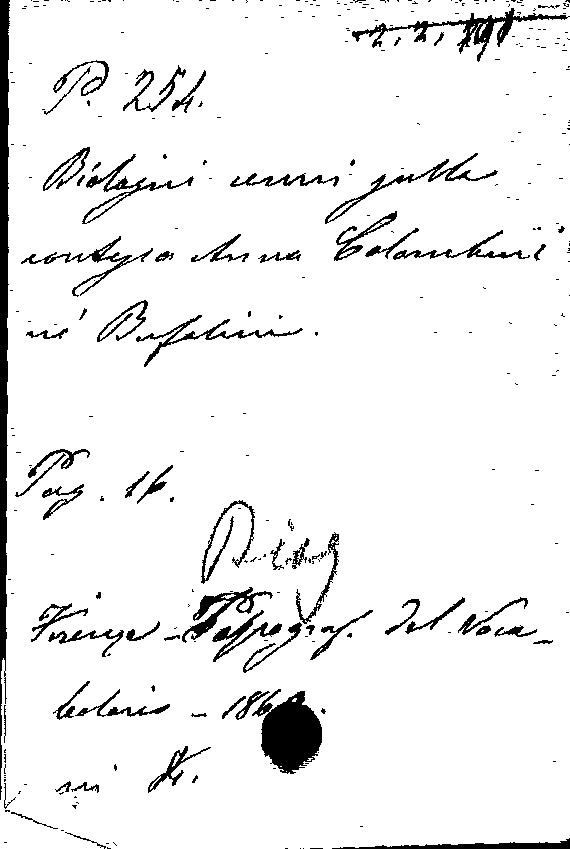 2. 2. 191
P. 254.
Biologini cenni sulla
contessa Anna Colombini
né Bufalini.
Pag. 16.
Biog
Firenze - Tipograf. del Voca-
bolario - 186
in 4.